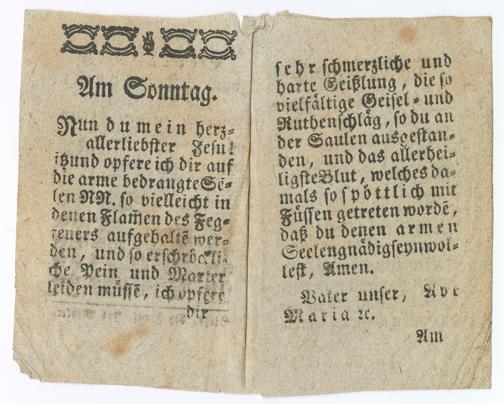 Am Sonntag.
Nun du mein herz-
allerliebster Jesu!
itzund opfere ich dir auf
die arme bedrangte See-
len NN. so vielleicht in
denen Flam̄en des Feg-
feuers aufgehaltē wer-
den, und so erschröckli-
che Pein und Marter
leiden müssē, ich opfere
dir
sehr schmerzliche und
harte Geißlung, die so
vielfältige Geisel- und
Ruthenschläg, so du an
der Saulen ausgestan-
den, und das allerhei-
ligste Blut, welches da-
mals so spöttlich mit
Füssen getreten wordē,
daß du denen armen
Seelen gnädig seyn wol-
lest, Amen.
Vater unser, Ave
Maria ꝛc.
Am